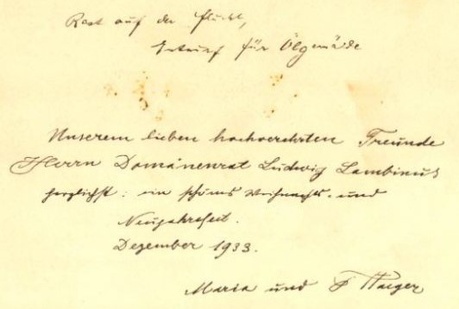 Rast auf der Flucht,
Entwurf für Ölgemälde
Unserem lieben hochverehrten Freunde
Herrn Domänenrat Ludwig Lambinus
herzlichst: ein schönes Weihnachts- und
Neujahrsfest.
Dezember 1933.
Maria und